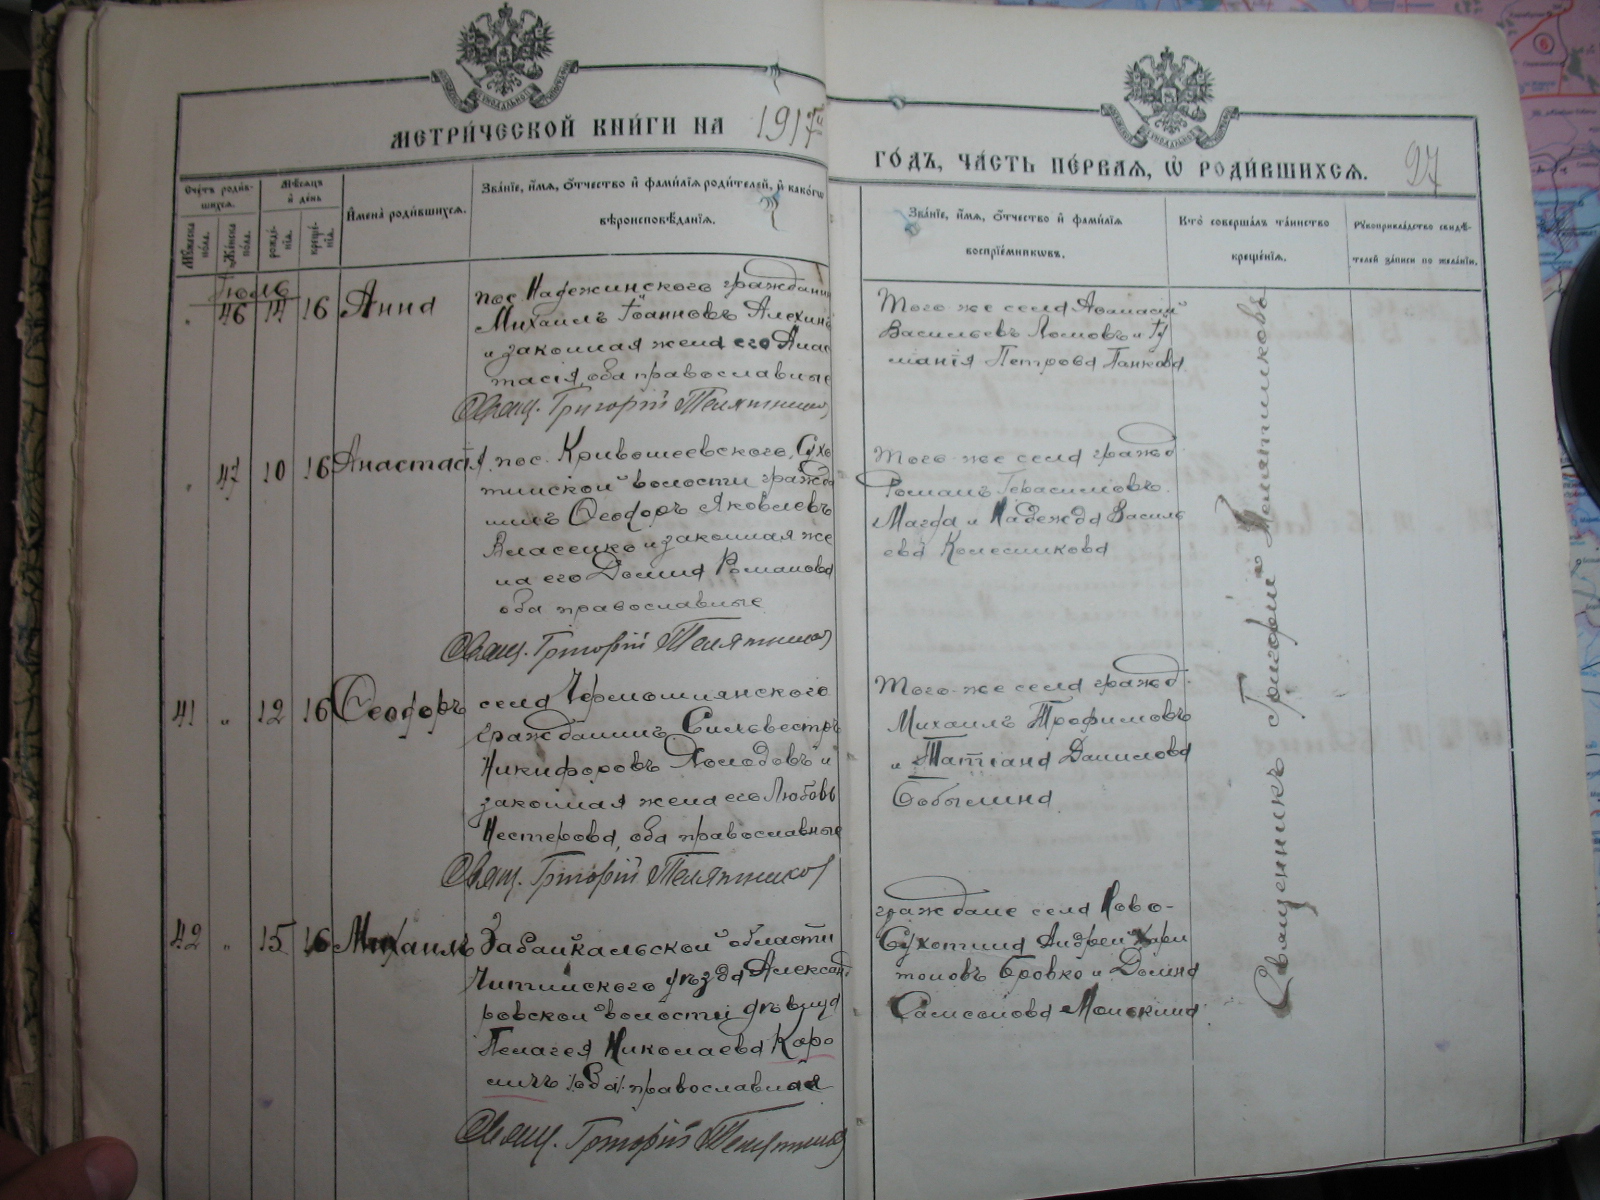 МЕТРИ́ЧЕСКОЙ КНИ́ГИ НА 1917й
ГО́ДЪ, ЧА́СТЬ ПЕ́РВАЯ, Ѡ РОДИ́ВШИХСЯ.
27
Сче́тъ роди́в-
шихся.
Му́жеска по́ла.
Же́нска по́ла.
Мѣ́сяцъ и де́нь
рожде́-
нїя.
креще́-
нїя.
И҆мена̀ роди́вшихся.
Зва́нїе, и҆́мя, ѻ҆́тчество и҆ фами́лїя роди́телей, и҆ како́гѡ
вѣроисповѣ́данїя.
Зва́нїе, и҆́мя, ѻ҆́тчество и҆ фами́лїя
воспрїе́мникѡвъ.
Кто̀ соверша́лъ та́инство
креще́нїя.
Рꙋкоприкла́дство свидѣ́-
телей за́писи по жела́нїю.
Іюль
46 14 16 Анна
пос. Надежинского гражданин
Михаилъ Іоанновъ Алехинъ
и законная жена его Анас
тасія, оба православные
Свящ. Григорій Телятников
Того же села Аѳанасій
Васильевъ Ломовъ и
Петрова Панкова
47 10 16 Анастасія
пос. Кривошеевского, Сухо
тинской волости гражда
нинъ Ѳеодоръ Яковлевъ
Власенко и законная же
на его Домна Романова
оба православные
Свящ. Григорій Телятников
Того-же села гражд.
Романъ Герасимовъ
Магда и Надежда Василь
ева Колесникова
41 „ 12 16 Ѳеодоръ
села Чермошнянского
гражданинъ Сильвестръ
Никифоровъ Холодовъ и
законная жена его Любовь
Нестерова, оба православные
Свящ. Григорій Телятников
Того-же села гражд.
Михаилъ Трофимовъ
и Татіана Данилова
Бобылина
42 „ 15 16 Михаилъ
Забайкальской области
Читинского уѣзда Александ
ровской волости дѣвица
Пелагея Николаева Каро
православная
Свящ. Григорій Телятников
граждане села Ново-
Сухотина Андрей Хари
тоновъ Бровко и Домна
Самсонова Монкина
Священникъ Григорій Телятниковъ